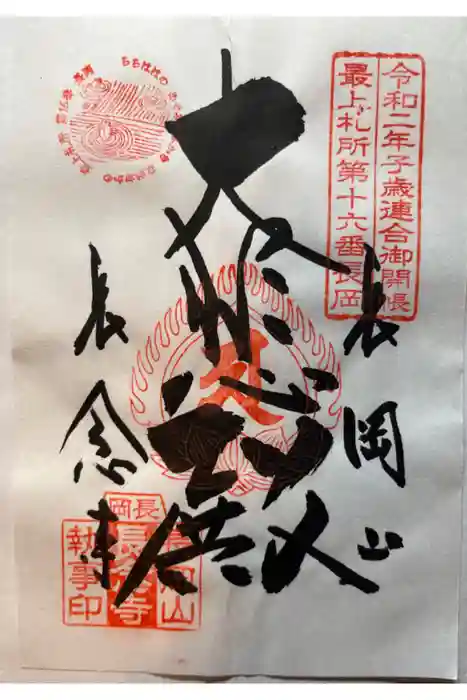 令和二年子歳連合御開帳
最上札所第十六番長岡
長岡山
大悲殿
長念寺
長岡
長岡山
長念寺
執事印